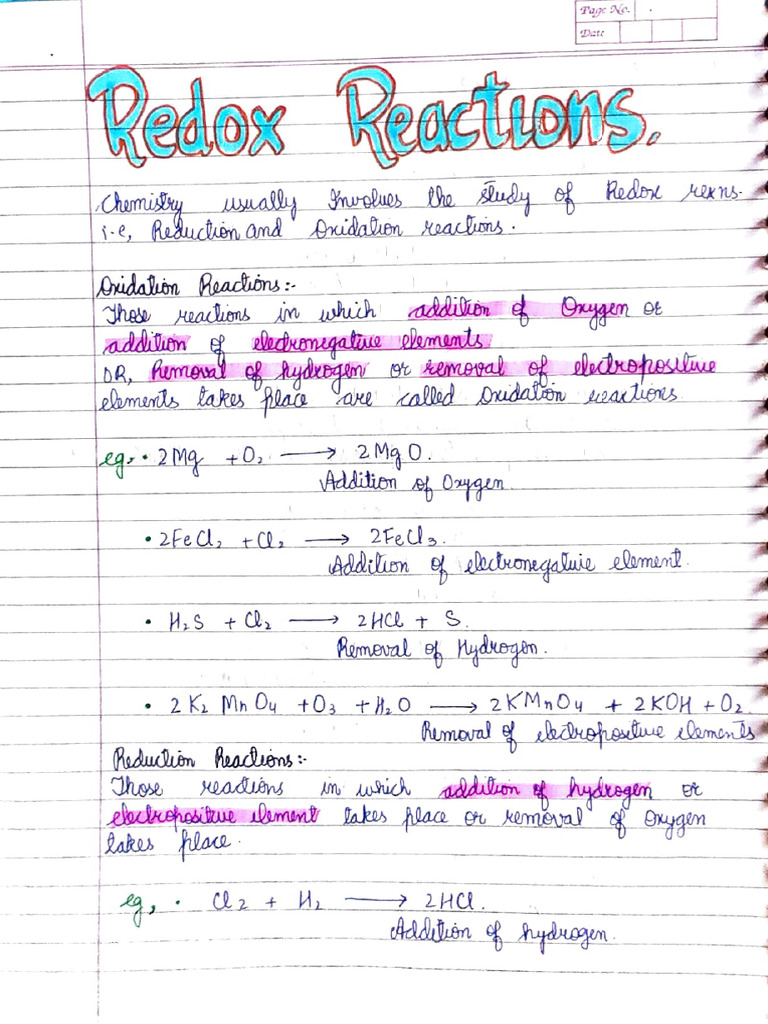 Page No.
Date
Redox Reactions.
Chemistry usually Involves the study of Redox rexns.
i.e, Reduction and Oxidation reactions.
Oxidation Reactions:-
Those reactions in which addition of Oxygen or
addition of electronegative elements
OR, Removal of hydrogen or removal of electropositive
elements takes place are called Oxidation reactions
eg, • 2Mg + O₂ ⟶ 2MgO.
Addition of Oxygen
• 2FeCl₂ + Cl₂ ⟶ 2FeCl₃.
Addition of electronegative element.
• H₂S + Cl₂ ⟶ 2HCl + S.
Removal of Hydrogen.
• 2K₂MnO₄ + O₃ + H₂O ⟶ 2KMnO₄ + 2KOH + O₂
Removal of electropositive elements
Reduction Reactions:-
Those reactions in which addition of hydrogen or
electropositive element takes place or removal of Oxygen
takes place.
eg, • Cl₂ + H₂ ⟶ 2HCl.
Addition of hydrogen.